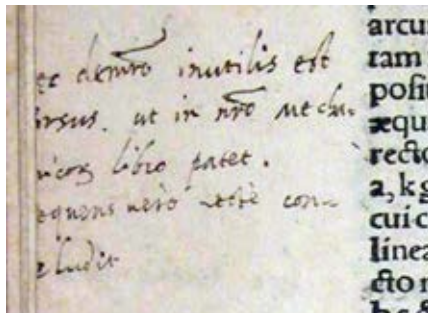 ec demr̄o inutilis est
rsus. ut in nr̄o Mecha-
nicoꝝ libro patet.
equens vero recte con-
cludit
arcu
ram
poſi
æqu
recto
a, k g
cui c
linea
cto